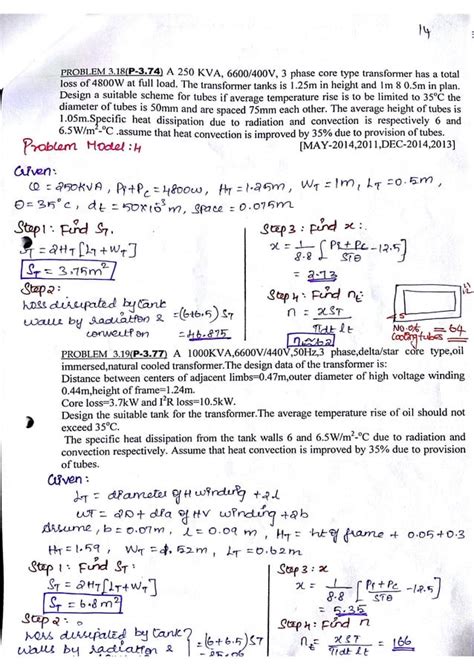 14
PROBLEM 3.18(P-3.74) A 250 KVA, 6600/400V, 3 phase core type transformer has a total
loss of 4800W at full load. The transformer tanks is 1.25m in height and 1m 8 0.5m in plan.
Design a suitable scheme for tubes if average temperature rise is to be limited to 35°C the
diameter of tubes is 50mm and are spaced 75mm each other. The average height of tubes is
1.05m.Specific heat dissipation due to radiation and convection is respectively 6 and
6.5W/m²-°C .assume that heat convection is improved by 35% due to provision of tubes.
[MAY-2014,2011,DEC-2014,2013]
Problem Model:4
Given:
Q = 250KVA, Pi+Pc=4800W, HT=1.25m, WT=1m, LT=0.5m,
θ=35°C, dt=50x10⁻³m, space = 0.075m
Step1: Find ST.
ST = 2HT[LT+WT]
ST = 3.75m²
Step2:
Loss dissipated by tank
walls by radiation &
convection
=(6+6.5)ST
=46.875
Step3: Find x:
x = 1/8.8 [Pi+Pc/STθ -12.5]
= 2.73
Step4: Find nt
n = xST/πdt lt
n≈62
No. of = 64
cooling tubes
PROBLEM 3.19(P-3.77) A 1000KVA,6600V/440V,50Hz,3 phase,delta/star core type,oil
immersed,natural cooled transformer.The design data of the transformer is:
Distance between centers of adjacent limbs=0.47m,outer diameter of high voltage winding
0.44m,height of frame=1.24m.
Core loss=3.7kW and I²R loss=10.5kW.
Design the suitable tank for the transformer.The average temperature rise of oil should not
exceed 35°C.
The specific heat dissipation from the tank walls 6 and 6.5W/m²-°C due to radiation and
convection respectively. Assume that heat convection is improved by 35% due to provision
of tubes.
Given:
LT = diameter of H winding + 2l
WT = 2D + dia of HV winding +2b
Assume, b = 0.07m, l = 0.09 m, HT = ht of frame + 0.05+0.3
HT=1.59, WT=1.52m, LT=0.62m
Step 1: Find ST:
ST = 2HT[LT+WT]
ST = 6.8m²
Step 2:
Loss dissipated by tank
walls by radiation &
=(6+6.5)ST
= 85
Step3: x
x = 1/8.8 [Pi+Pc/STθ -12.5]
= 5.35
Step4: Find nt
nt = xST/πdt lt = 166